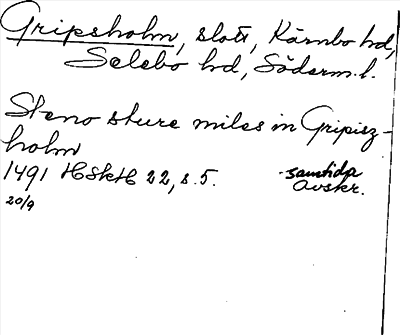 Gripsholm, slott, Kärnbo hd,
Selebo hd, Söderm. l.
Steno sture miles in Gripisz-
holm
1491 HSkH 22, s. 5. samtida
Avskr.
20/9